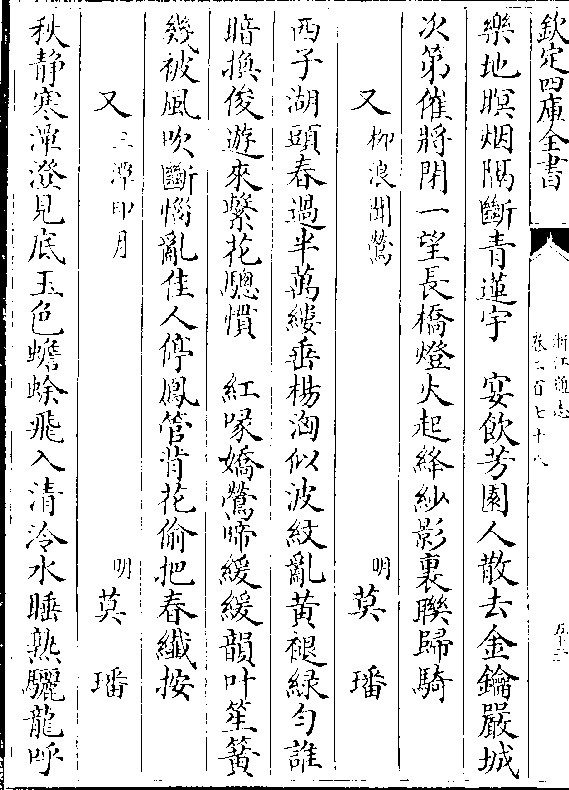 欽定四庫全書
浙江通志
卷二百七十八
五十三
樂地暝烟隔斷青蓮宇　宴飲芳園人散去金鑰嚴城
次第催將閉一望長橋燈火起絳紗影裏聯歸騎
又柳浪聞鶯　明莫璠
西子湖頭春過半萬縷垂楊洶似波紋亂黄褪緑勻誰
暗換俊遊來繫花驄慣　紅喙嬌鶯啼緩緩韻叶笙簧
幾被風吹斷惱亂佳人停鳳管背花偷把春纖按
又三潭印月　明莫璠
秋静寒潭澄見底玉色蟾蜍飛入清泠水睡熟驪龍呼